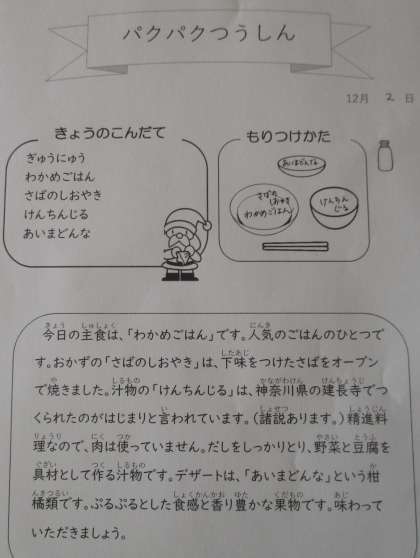 パクパクつうしん
12月 2 日
きょうのこんだて
ぎゅうにゅう
わかめごはん
さばのしおやき
けんちんじる
あいまどんな
もりつけかた
あいまどんな
さばの
しおやき
わかめごはん
けんちん
じる
今日の主食は、「わかめごはん」です。人気のごはんのひとつで
す。おかずの「さばのしおやき」は、下味をつけたさばをオーブン
で焼きました。汁物の「けんちんじる」は、神奈川県の建長寺でつ
くられたのがはじまりと言われています。(諸説あります。)精進料
理なので、肉は使っていません。だしをしっかりとり、野菜と豆腐を
具材として作る汁物です。デザートは、「あいまどんな」という柑
橘類です。ぷるぷるとした食感と香り豊かな果物です。味わって
いただきましょう。